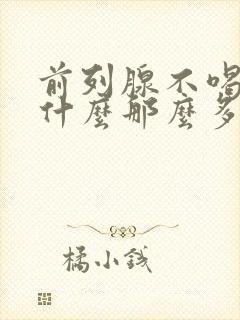 前列腺不喝
什麼那麼多
橘小钱